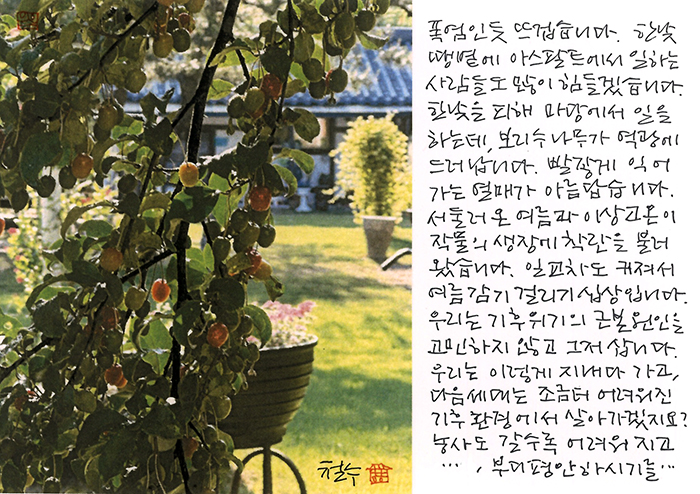 폭염인듯 뜨겁습니다. 한낮
땡볕에 아스팔트에서 일하는
사람들도 많이 힘들겠습니다.
한낮을 피해 마당에서 일을
하는데, 보리수나무가 역광에
드러납니다. 빨갛게 익어
가는 열매가 아름답습니다.
서둘러 온 여름과 이상고온이
작물의 생장에 착란을 불러
왔습니다. 일교차도 커져서
여름감기 걸리기 십상입니다.
우리는 기후위기의 근본원인을
고민하지 않고 그저 삽니다.
우리는 이렇게 지내다 가고,
다음세대는 조금더 어려워진
기후환경에서 살아가겠지요?
농사도 갈수록 어려워지고
…, 부디 평안하시기를…
철수